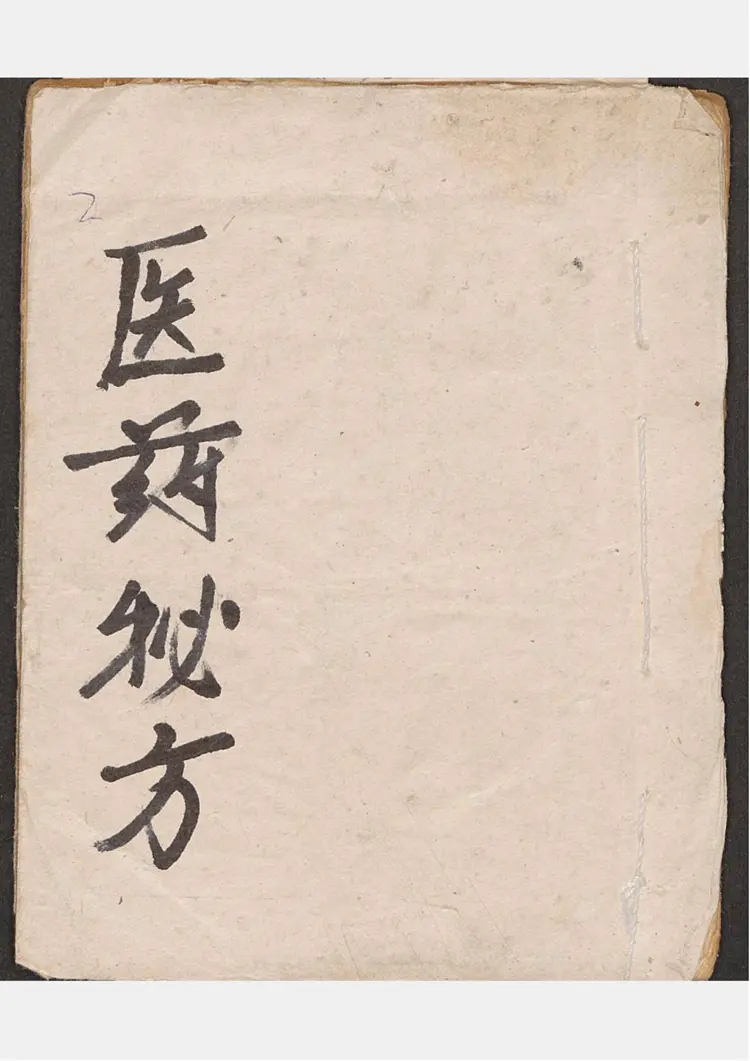 2
医药秘方